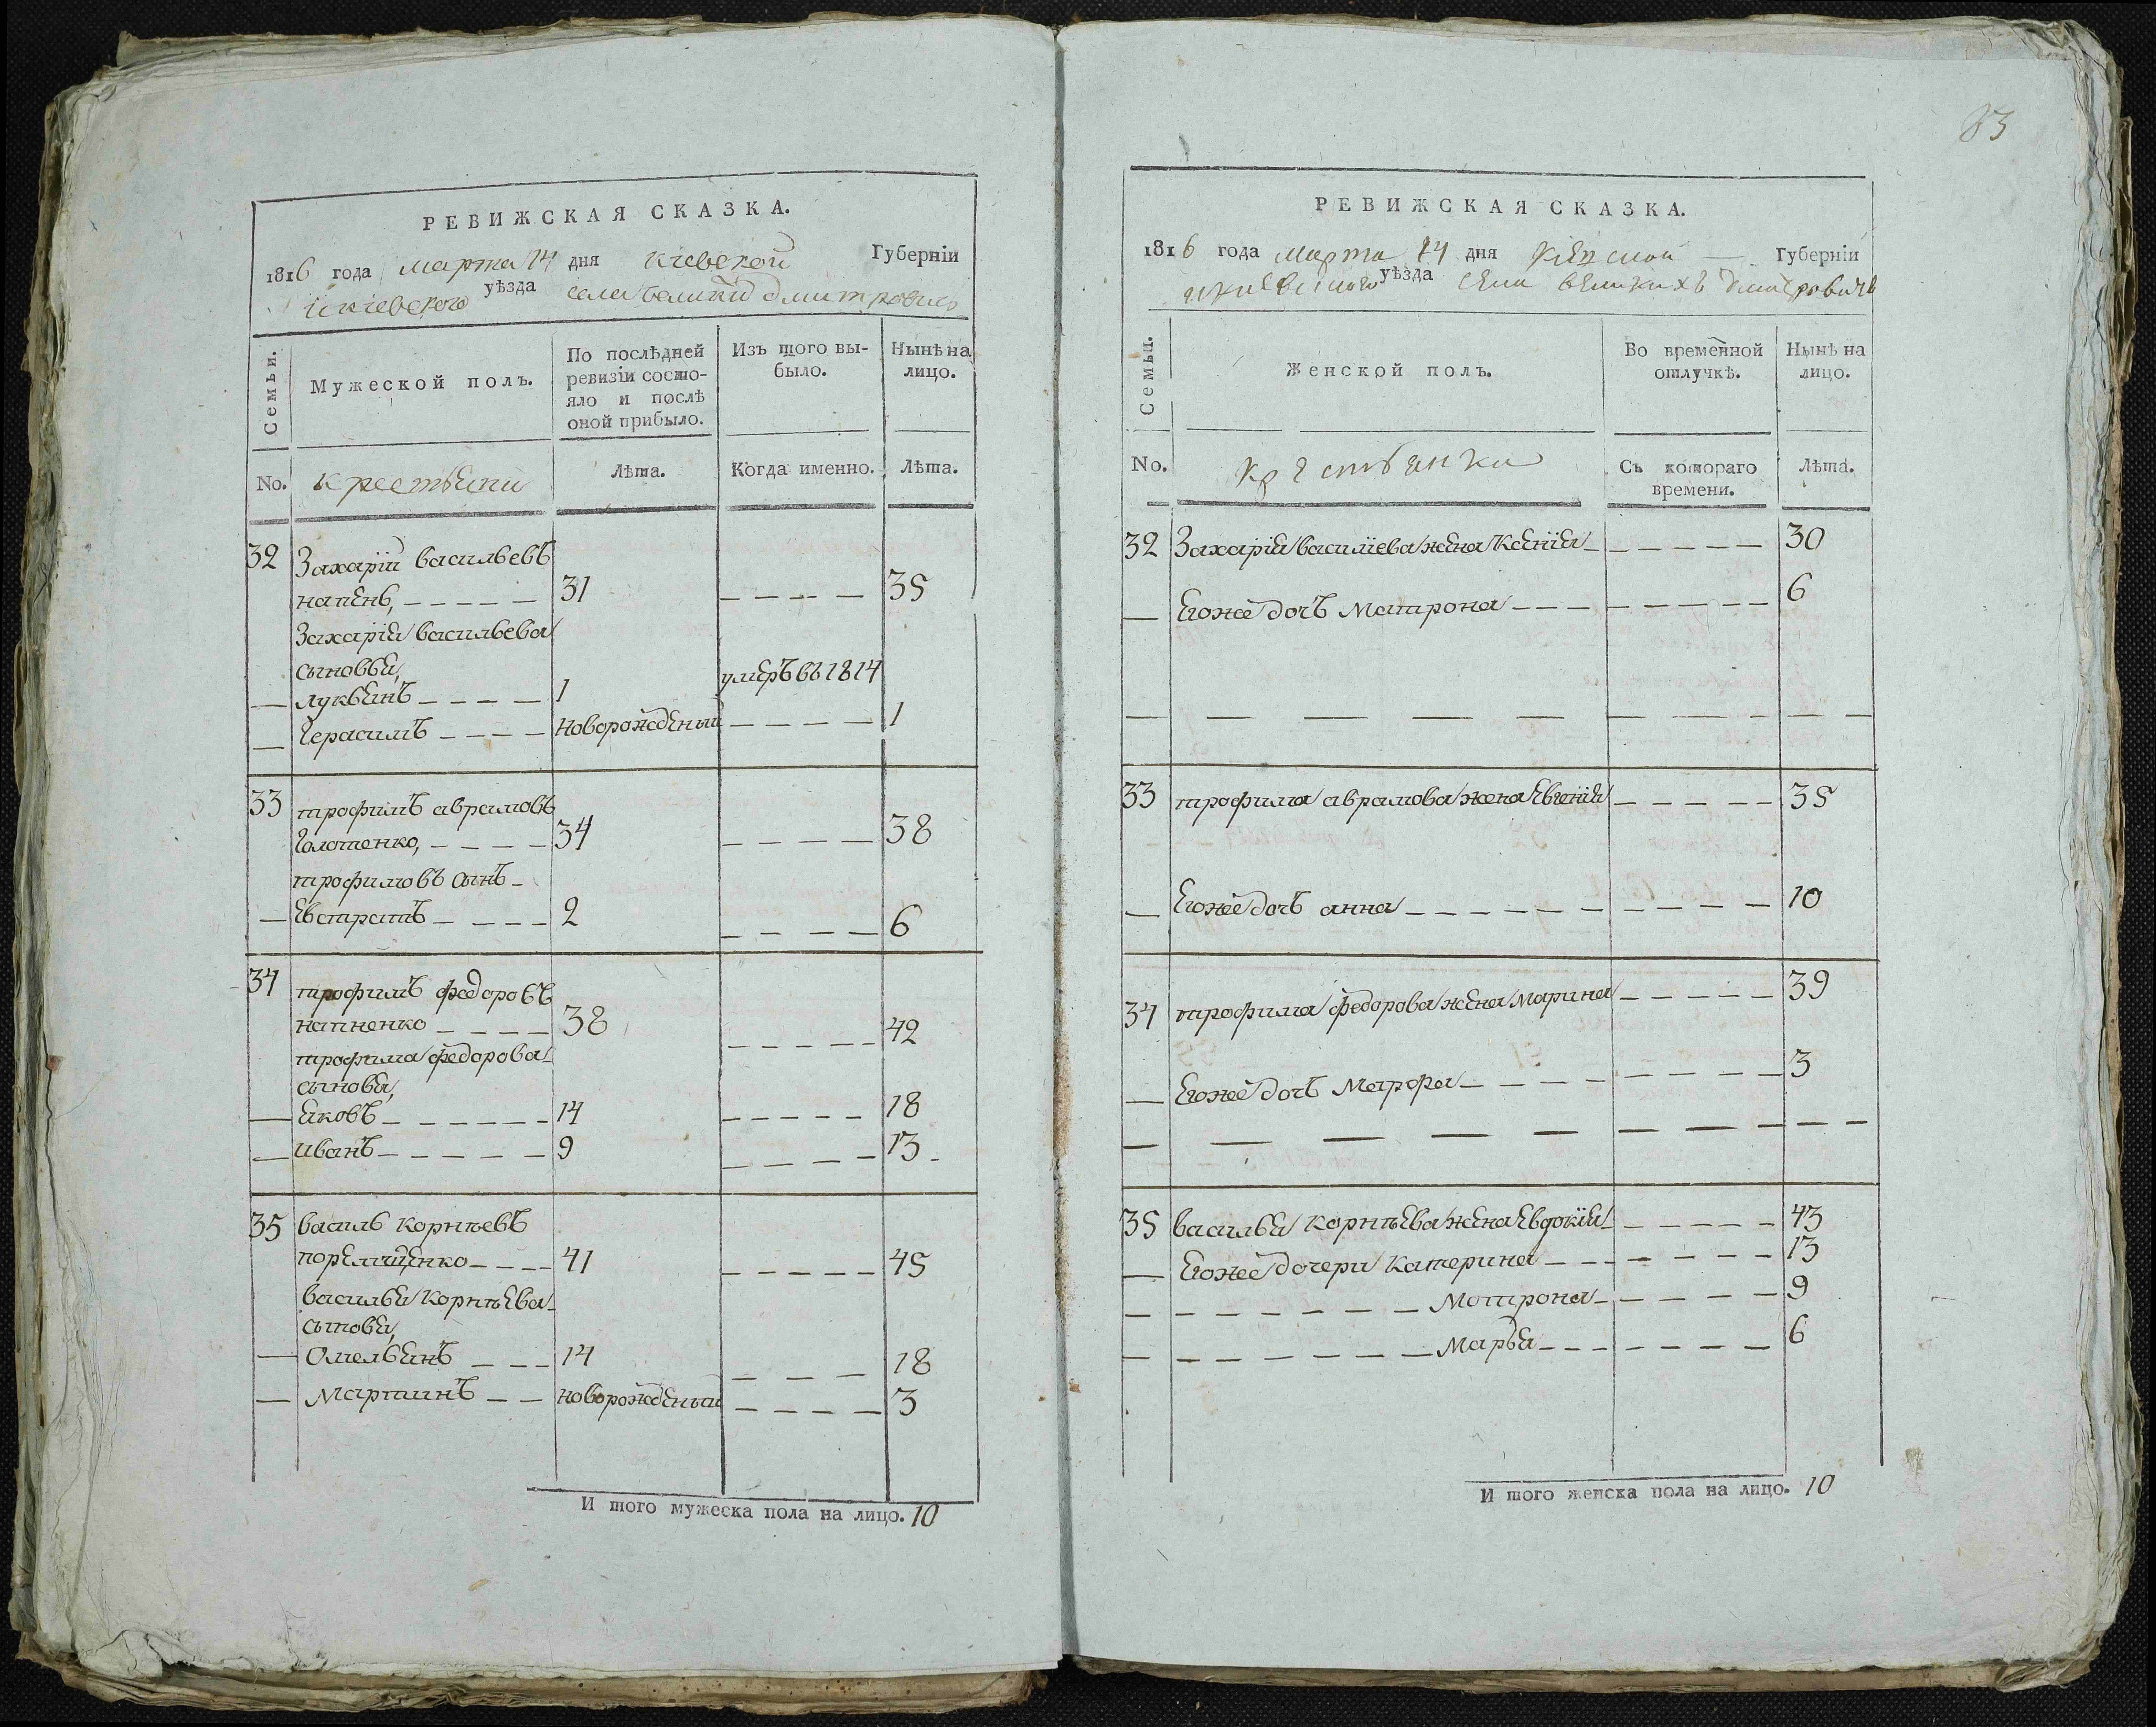 83
РЕВИЖСКАЯ СКАЗКА.
1816 года марта 14 дня Кіевской Губерніи
и кіевского уѣзда села великихъ дмитровичъ
Семьи.
Мужеской полъ.
По послѣдней ревизіи состояло и послѣ оной прибыло.
Изъ того выбыло.
Нынѣ на лицо.
No. крестьяни Лѣта. Когда именно. Лѣта.
32 Захарій васильевъ
напень, 31 35
Захарія васильева
сыновья,
лукьянъ 1 умеръ въ 1814
Герасимъ новорожденый 1
33 трофимъ аврамовъ
Голотенко, 34 38
трофимовъ сынъ
Евстратъ 2 6
34 трофимъ федоровъ
напненко 38 42
трофима федорова
сыновя,
яковъ 14 18
иванъ 9 13
35 василь корнѣевъ
41 45
василья корнѣева
сыновя,
омельянъ 14 18
мартинъ новорожденый 3
И того мужеска пола на лицо. 10
РЕВИЖСКАЯ СКАЗКА.
1816 года марта 14 дня Кіевской Губерніи
и кіевского уѣзда села великихъ дмитровичъ
Семьи.
Женской полъ.
Во временной отлучкѣ.
Нынѣ на лицо.
No. крестьянки Съ котораго времени. Лѣта.
32 Захарія василіева жена Ксенія 30
Егоже дочъ Матрона 6
33 трофима аврамова жена Евгенія 35
Егоже дочъ анна 10
34 трофима федорова жена Марина 39
Егоже дочъ Марфа 3
35 василья корнѣева жена Евдокія 43
Егоже дочери Катерина 13
Мотрона 9
Марья 6
И того женска пола на лицо. 10